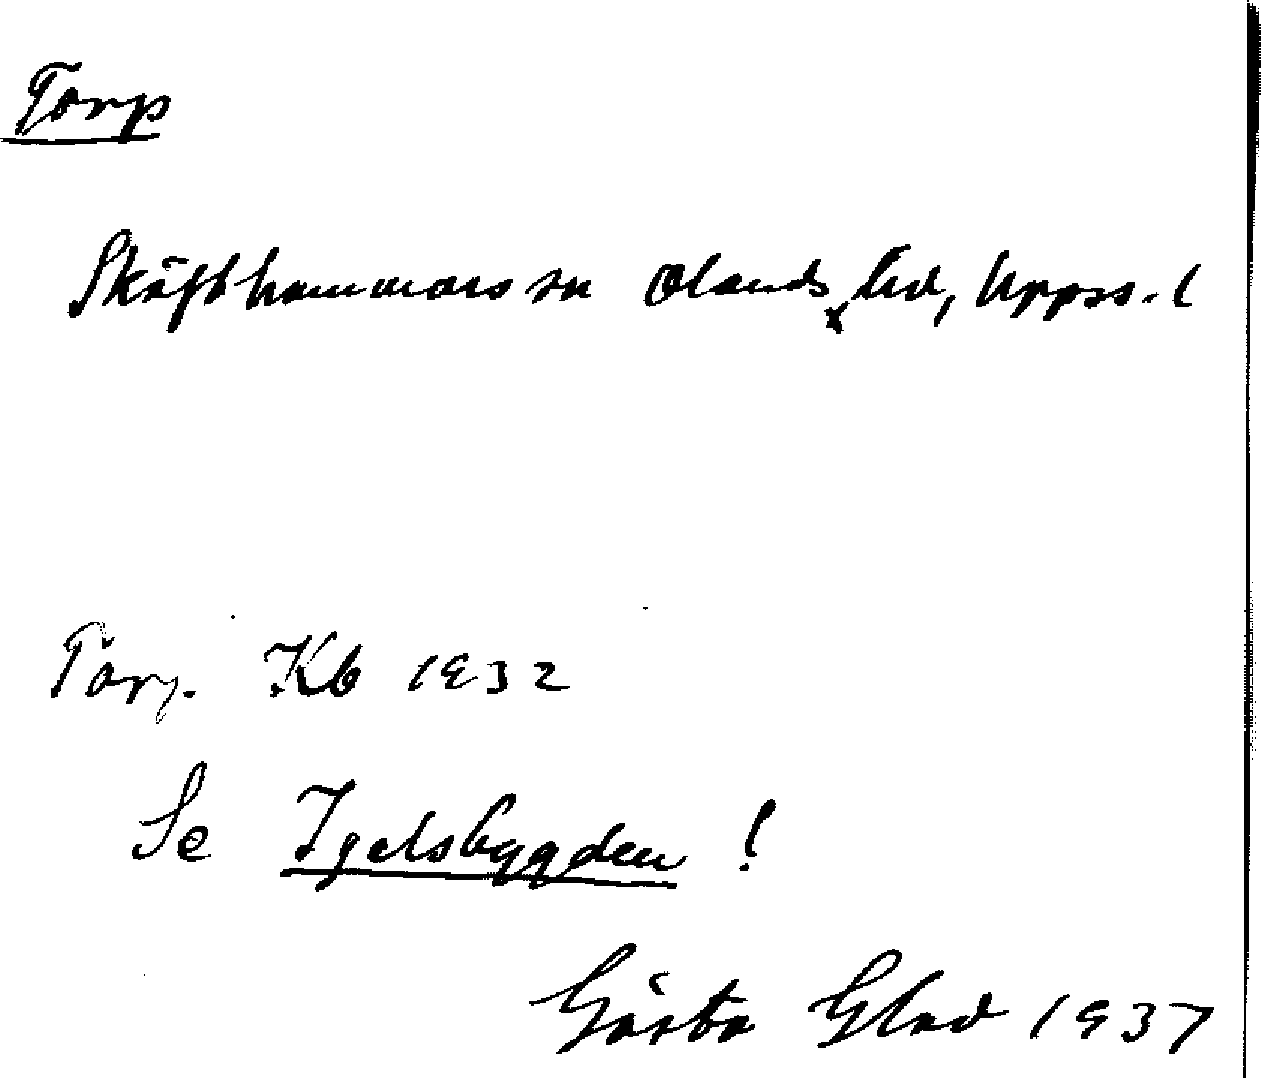 Torp
Skäfthammars sn Olands hd, Upps. l
Torp. Kb 1932
Se Igelsbygden !
Gösta Glad 1937